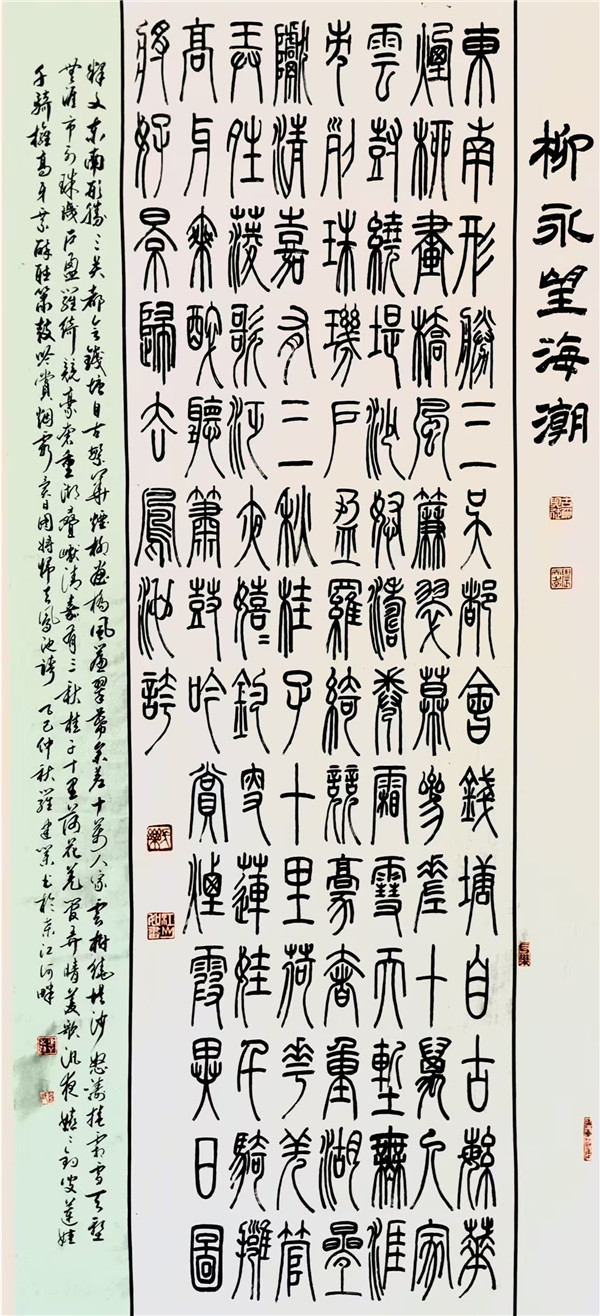 柳永望海潮
東南形勝三吳都會錢塘自古繁華
煙柳畫橋風簾翠幕參差十萬人家
雲樹繞堤沙怒濤卷霜雪天塹無涯
市列珠璣戶盈羅綺競豪奢重湖疊
巘清嘉有三秋桂子十里荷花羌管
弄晴菱歌泛夜嬉嬉釣叟蓮娃千騎擁
高牙乘醉聽簫鼓吟賞煙霞異日圖
將好景歸去鳳池誇
释文东南形勝三吴都会錢塘自古繁華煙柳畫橋風簾翠幕參差十萬人家雲樹繞堤沙怒濤捲霜雪天塹
無涯市列珠璣户盈羅綺競豪奢重湖疊巘清嘉有三秋桂子十里荷花羌管弄晴菱歌泛夜嬉嬉釣叟蓮娃
千騎擁高牙乘醉聽簫鼓吟賞烟霞異日圖將好景歸去鳳池誇 乙巳仲秋羅建業书於东江河畔